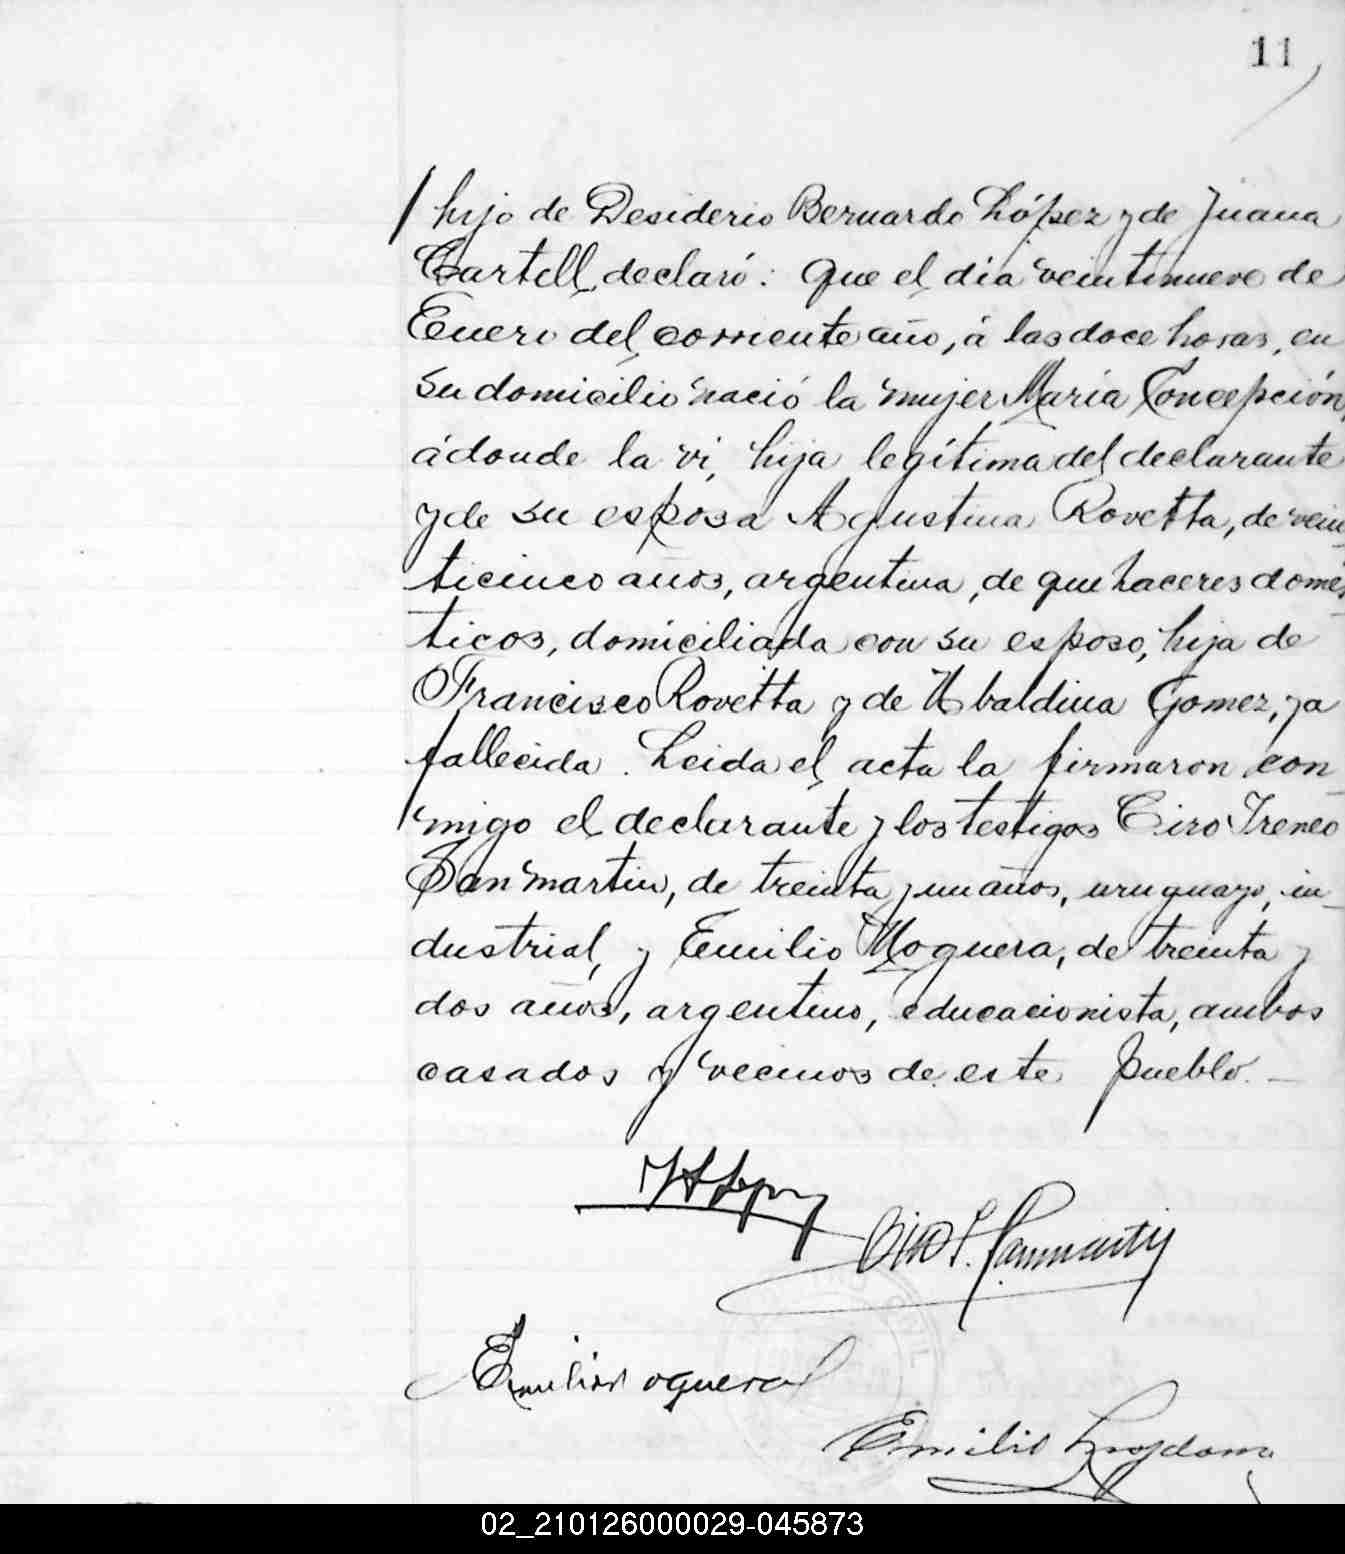 11
hijo de Desiderio Bernardo López y de Juana
Cartell, declaró: Que el día veintinueve de
Enero del corriente año, á las doce horas, en
su domicilio nació la mujer María Concepción,
ádonde la vi, hija legítima del declarante
y de su esposa Agustina Rovetta, de vein
ticinco años, argentina, de que haceres domés
ticos, domiciliada con su esposo, hija de
Francisco Rovetta y de Ubaldina Gomez, ya
fallecida. Leida el acta la firmaron con
migo el declarante y los testigos Ciro Ireneo
San martin, de treinta y un años, uruguayo, in
dustrial, y Emilio Noguera, de treinta y
dos años, argentino, educacionista, ambos
casados y vecinos de este pueblo. —
Ciro I. Sanmartin
Emilio Noguera
Emilio
02_210126000029-045873